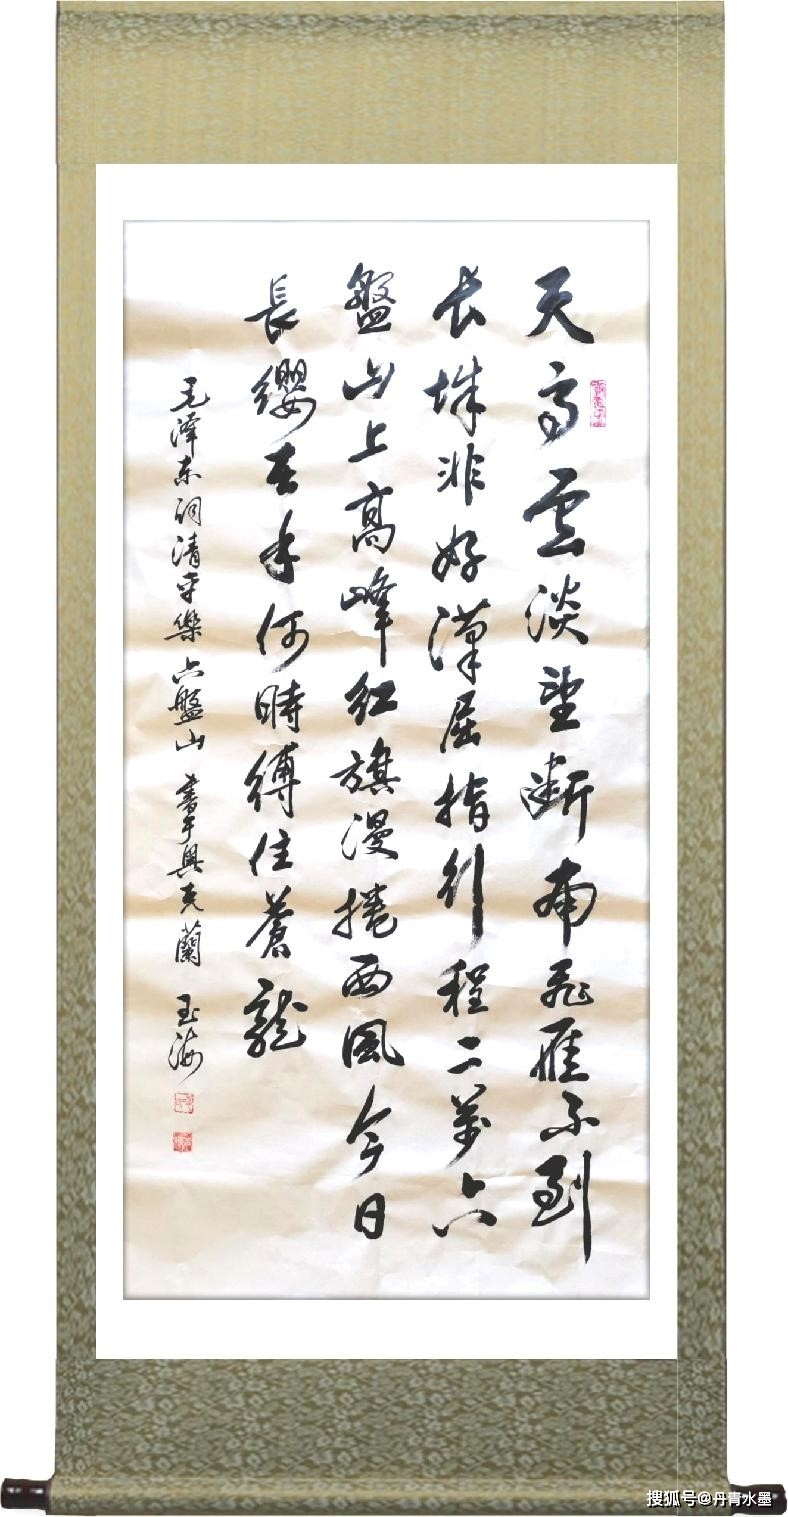 天高雲淡望斷南飛雁不到
长城非好漢屈指行程二萬六
盤山上高峰红旗漫捲西風今日
長纓在手何時縛住蒼龍
毛泽东词清平樂六盤山 書于克蘭 玉海
搜狐号@丹青水墨